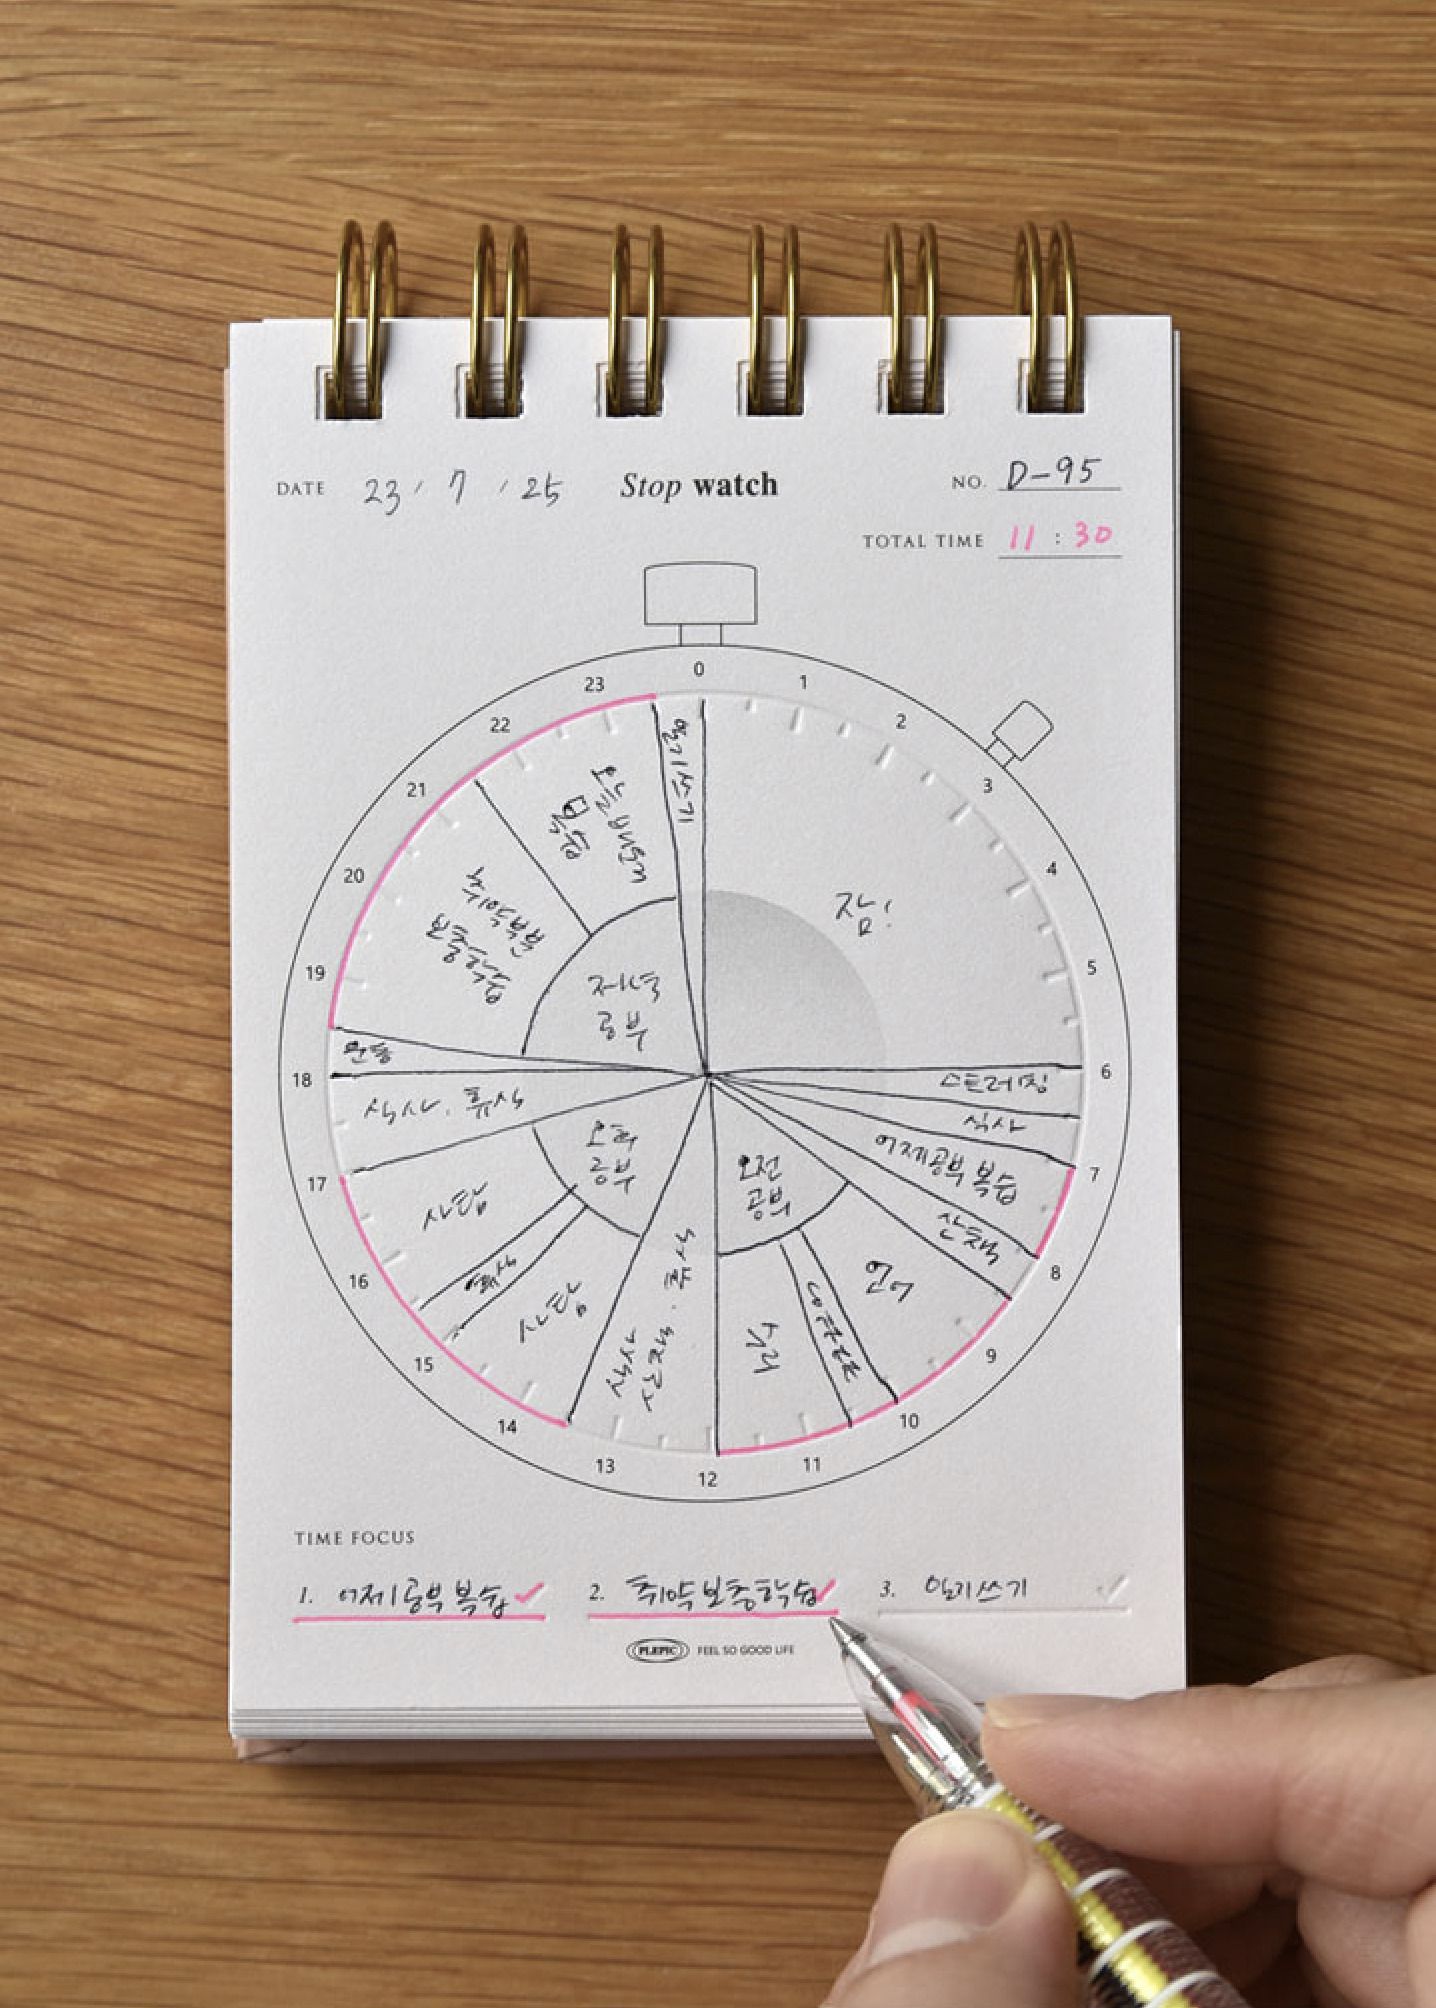 DATE 23 / 7 / 25
Stop watch
NO. D-95
TOTAL TIME 11 : 30
0
1
2
3
4
5
6
7
8
9
10
11
12
13
14
15
16
17
18
19
20
21
22
23
잠!
스트레칭
식사
어제공부 복습
산책
오전
공부
언어
수리
식사
산책 · 휴식
오후
공부
사탐
휴식
사탐
식사 · 휴식
운동
저녁
공부
취약부분
보충학습
오늘배운내용
복습
일기쓰기
TIME FOCUS
1. 어제공부복습 ✓
2. 취약보충학습 ✓
3. 일기쓰기 ✓
PLEPIC FEEL SO GOOD LIFE